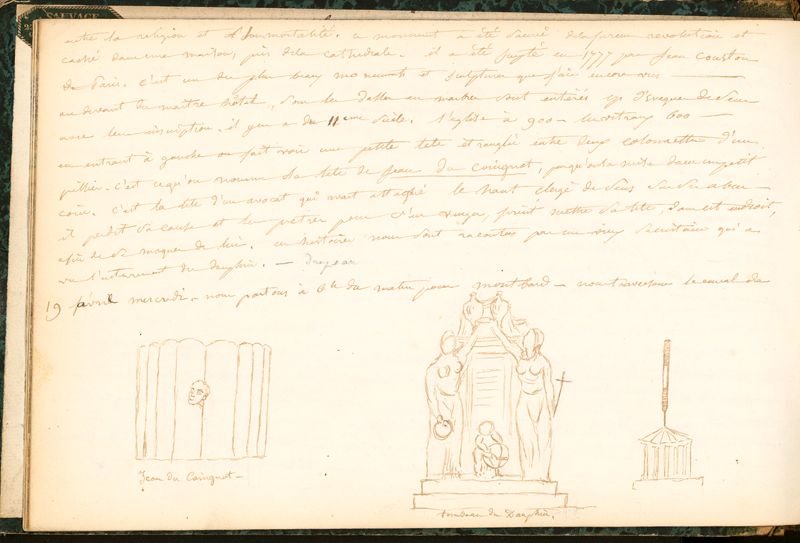 SAUVAGE
entre la religion et l'immortalité. ce monument a été sauvé de la fureur revolutionaire et
caché dans une maison, près de la cathedrale. il a été sculpté en 1777 par Jean Coustou
de Paris. c'est un des plus beaux monuments et sculptures que j'aie encore vus
au devant du maitre hôtel, sous les dalles en marbre sont enterrés les Eveques de Sens
avec leur inscription. il y en a du 11eme siècle. l'eglise a 900 les vitraux 600
en entrant à gauche on fait voir une petite tete etranglée entre deux colonnettes d'un
pillier. c'est ce qu'on nomme la tete de Jean du Coingnot, parqu'on la niche dans un petit
coin. c'est la tete d'un avocat qui avait attaqué le haut clergé de Sens
il perdit sa cause et les pretres pour s'en venger, firent mettre sa tete, dans cet endroit,
afin de se moquer de lui. ces histoires nous sont racontées par un vieux sacristain qui a
vu l'enterrement du dauphin.
19 avril mercredi. nous partons à 6h du matin pour montbard - nous traversons le canal de
Jean du Coingnot
tombeau du Dauphin.